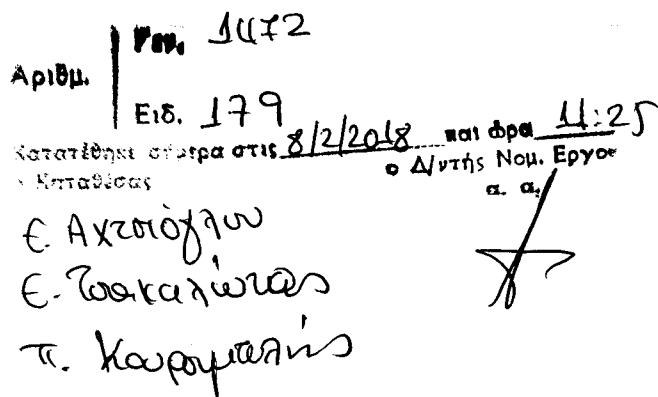 Αριθμ.
Γεν. 1472
Ειδ. 179
Κατατέθηκε σήμερα στις 8/2/2018 και ώρα 11:25
Ο Καταθέσας
ο Δ/ντής Νομ. Εργου
α. α.
Ε. Αχτσιόγλου
Ε. Τσακαλώτος
Π. Κουρουμπλής